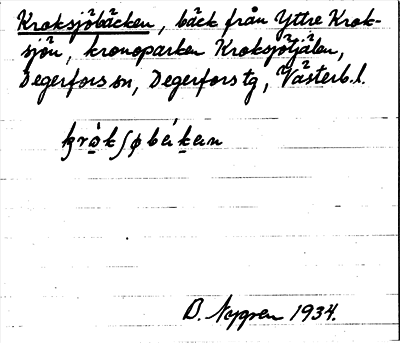 Kroksjöbäcken, bäck från Yttre Krok-
sjön, kronoparken Kroksjötjälen,
Degerfors sn, Degerfors tg, Västerb. l.
krók∫øbék̯en
B. Nygren 1934.